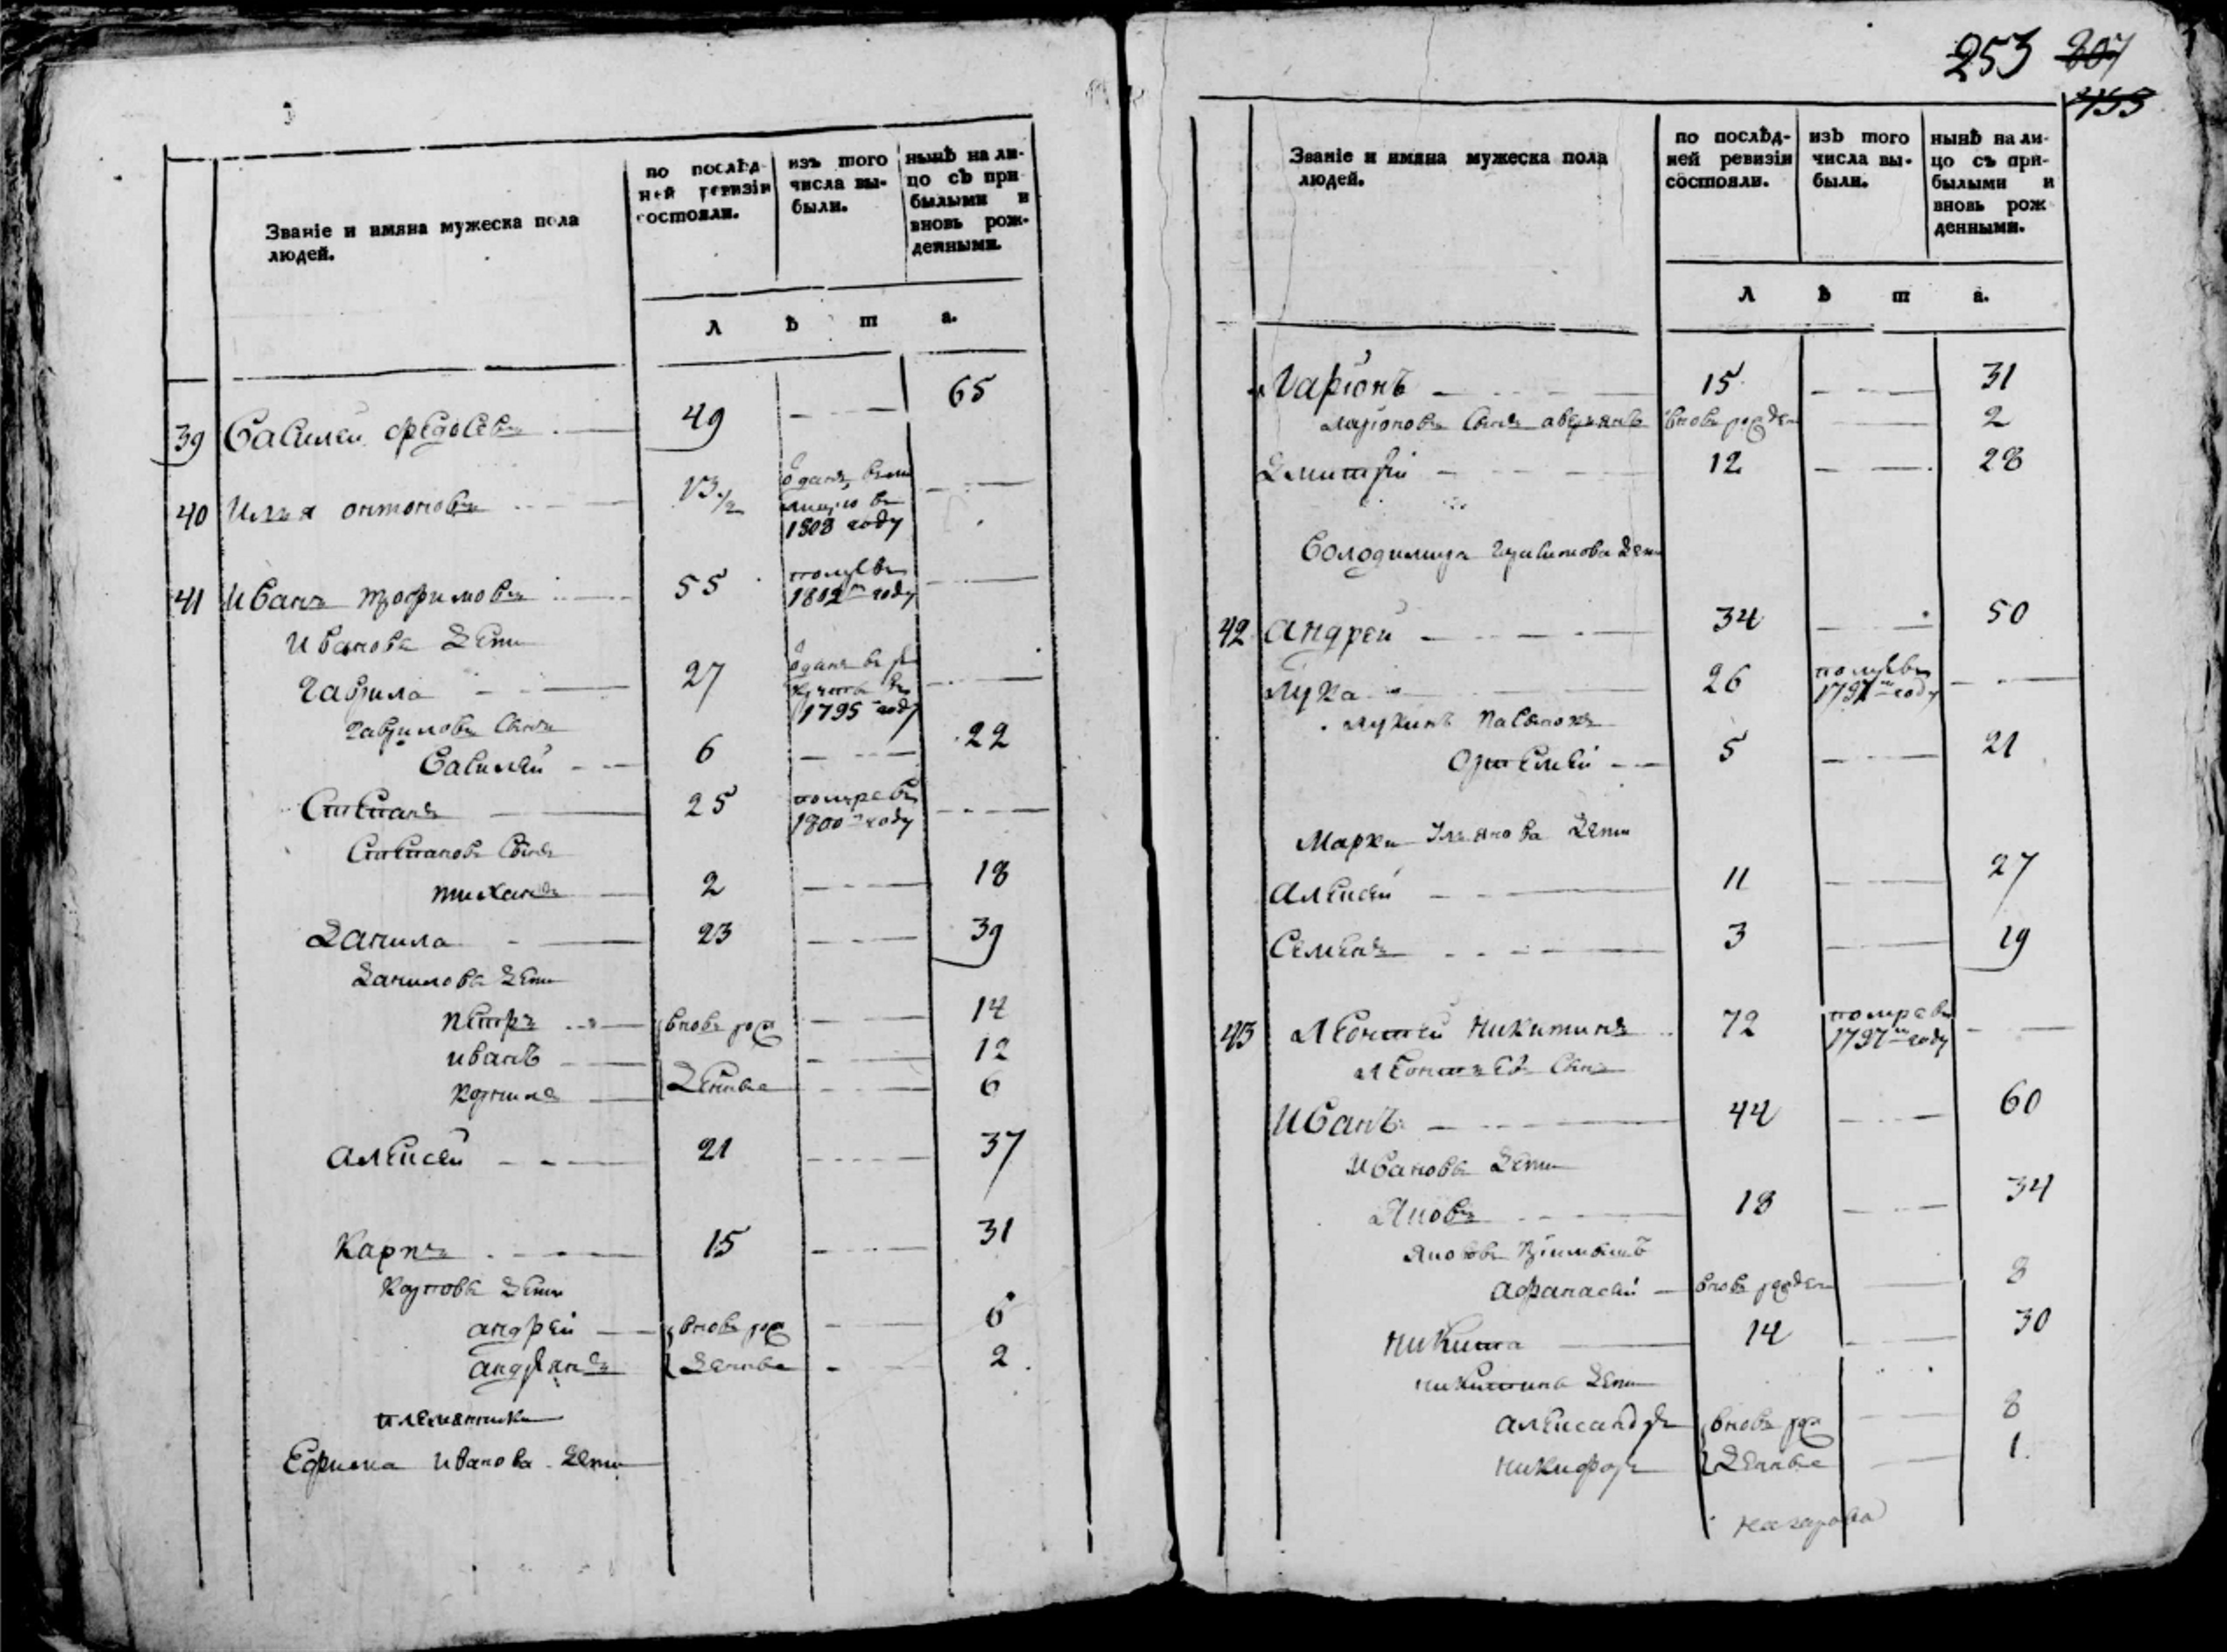 Званіе и имяна мужеска пола
людей.
по послѣд-
ней ревизіи
состояли.
изъ того
числа вы-
были.
нынѣ на ли-
цо съ при
былыми и
вновь рож-
денными.
л ѣ т а.
39 Василей федосевъ 49 65
40 Илья онтоновъ 13 1/2
1808 году
41 Иванъ трофимовъ 55 умре въ
1802м году
Ивановы дети
Гаврила 27 отданъ въ ре
круты въ
1795 году
гавриловъ сынъ
Василей 6 22
Степанъ 25 помре въ
1800м году
Степановъ сынъ
тиханъ 2 18
Данила 23 39
Даниловы дети
петръ вновь рож 14
иванъ 12
денные 6
алексей 21 37
Карпъ 15 31
Карповы дети
андрей вновь рож 6
андреянъ денные 2
племянники
Ефима иванова дети
253 207
453
Званіе и имяна мужеска пола
людей.
по послѣд-
ней ревизіи
состояли.
изъ того
числа вы-
были.
нынѣ на ли-
цо съ при-
былыми и
вновь рож
денными.
л ѣ т а.
Ларіонъ 15 31
Ларіоновъ сынъ аверьянъ вновь рожден 2
Дмитрій 12 28
дети
42 андрей 34 50
лука 26 умре въ
году
лукинъ пасынокъ
Ортемей 5 21
Марки дети
алексей 11 27
Семенъ 3 19
43 Леонтей никитинъ 72 помре въ
1797м году
Леонтьевъ сынъ
Иванъ 44 60
Ивановы дети
Яковъ 18 34
Яковъ
афанасей вновь рожден 8
никита 14 30
никитины дети
александръ вновь рож 8
никифоръ денные 1